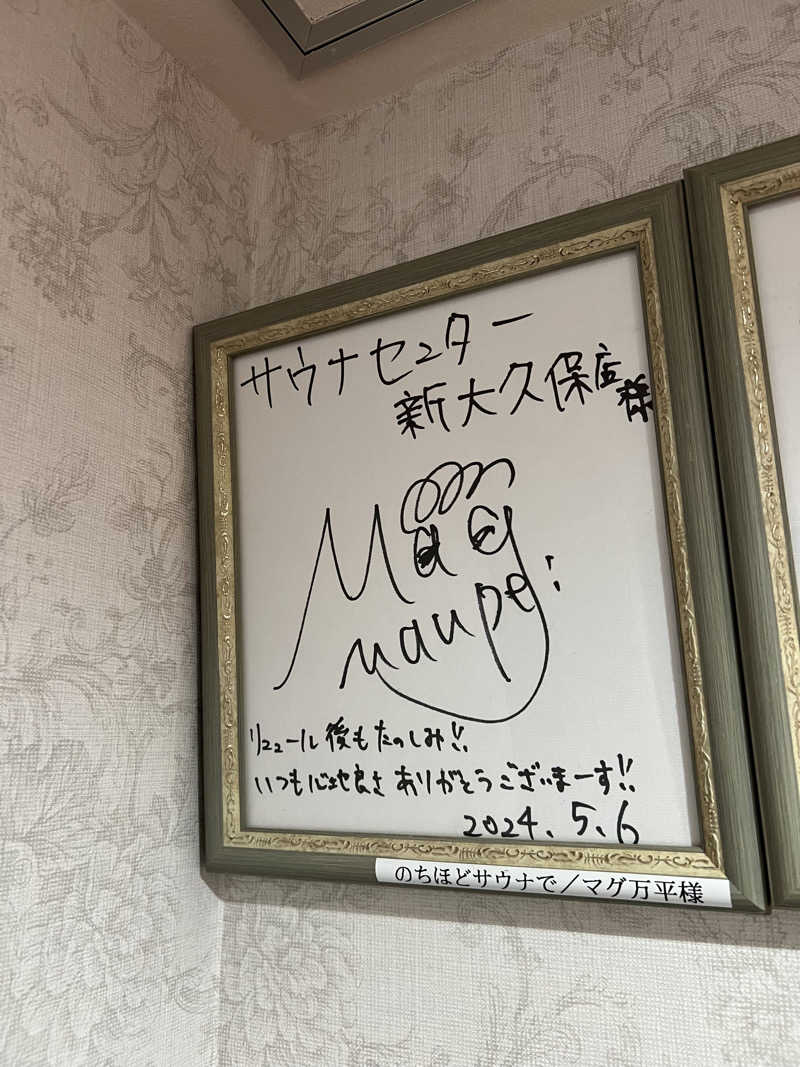 サウナセンター
新大久保店様
Mag
manpei
リニューアル後もたのしみ!!
いつも心地良さありがとうございまーす!!
2024.5.6
のちほどサウナで／マグ万平様